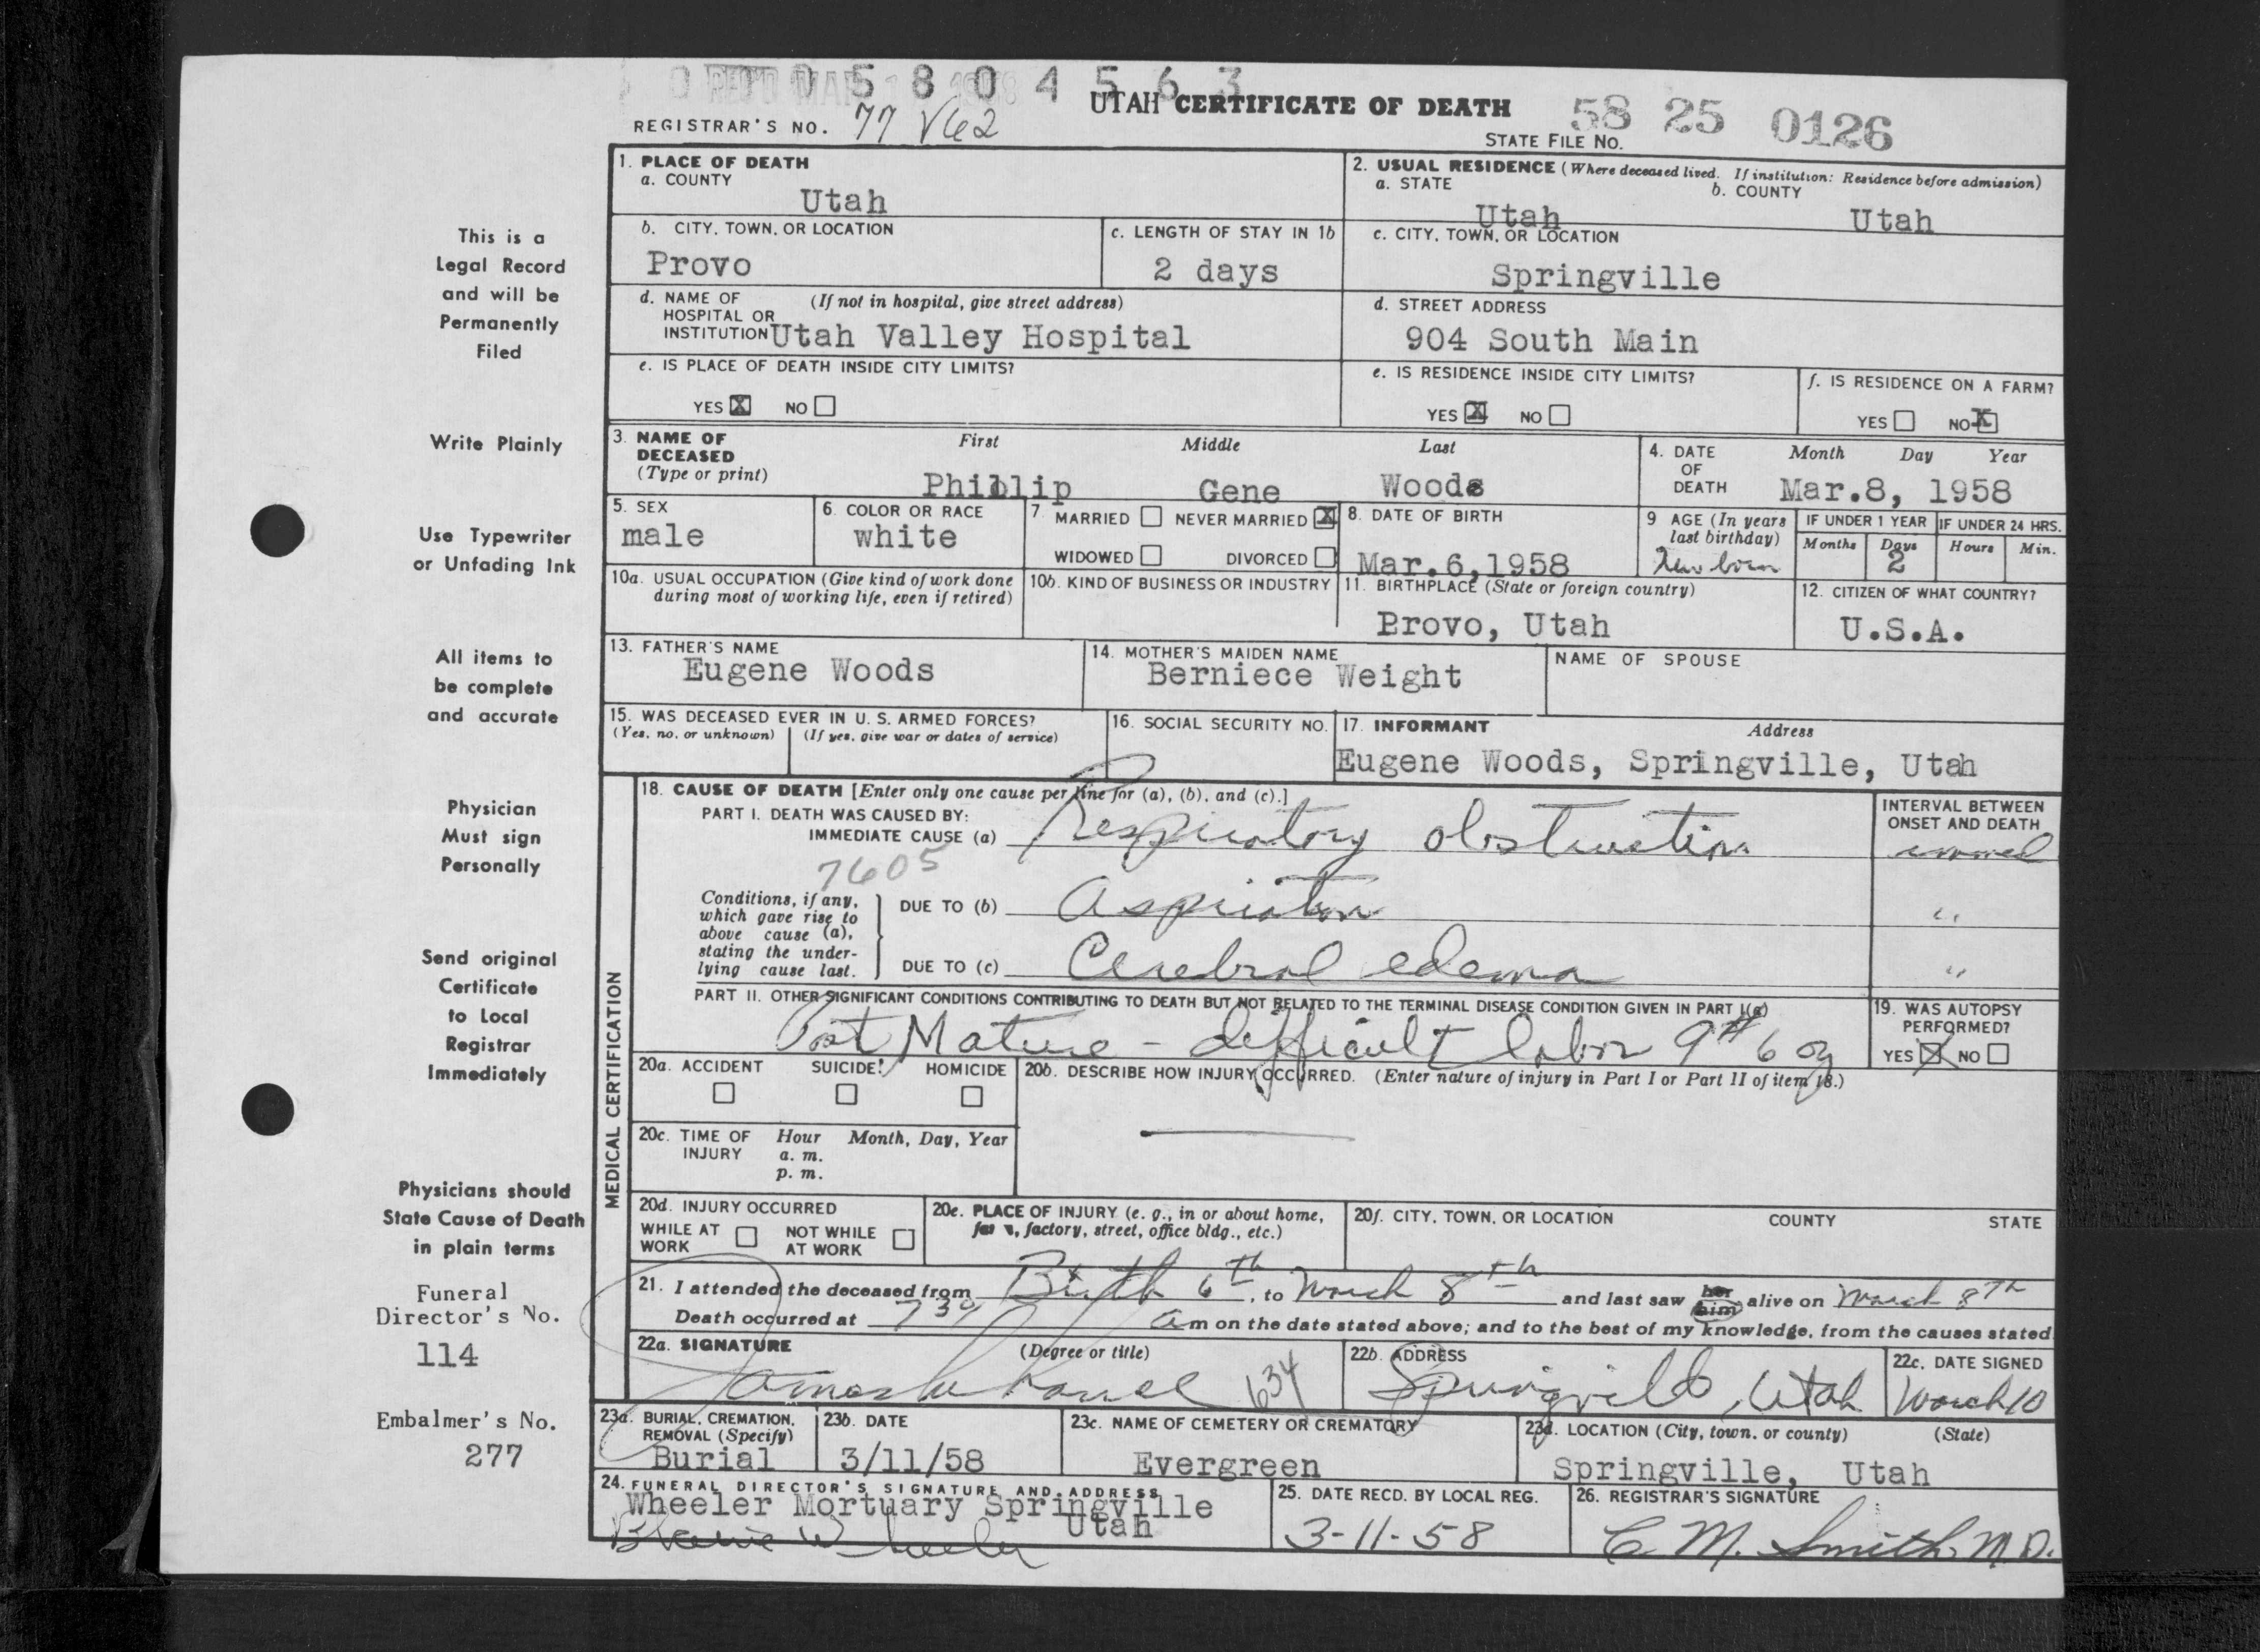 0 0 0 5 8 0 4 5 6 3
REC'D MAR 1958
UTAH CERTIFICATE OF DEATH
58 25 0126
REGISTRAR'S NO. 77 V62
STATE FILE NO.
1. PLACE OF DEATH
a. COUNTY
Utah
2. USUAL RESIDENCE (Where deceased lived. If institution: Residence before admission)
a. STATE
Utah
b. COUNTY
Utah
b. CITY, TOWN, OR LOCATION
Provo
c. LENGTH OF STAY IN 1b
2 days
c. CITY, TOWN, OR LOCATION
Springville
d. NAME OF HOSPITAL OR INSTITUTION
(If not in hospital, give street address)
Utah Valley Hospital
d. STREET ADDRESS
904 South Main
e. IS PLACE OF DEATH INSIDE CITY LIMITS?
YES X NO
e. IS RESIDENCE INSIDE CITY LIMITS?
YES X NO
f. IS RESIDENCE ON A FARM?
YES NO X
3. NAME OF DECEASED
(Type or print)
First Middle Last
Phillip Gene Woods
4. DATE OF DEATH
Month Day Year
Mar.8, 1958
5. SEX
male
6. COLOR OR RACE
white
7. MARRIED NEVER MARRIED X
WIDOWED DIVORCED
8. DATE OF BIRTH
Mar.6,1958
9 AGE (In years last birthday)
New born
IF UNDER 1 YEAR
Months Days
2
IF UNDER 24 HRS.
Hours Min.
10a. USUAL OCCUPATION (Give kind of work done during most of working life, even if retired)
10b. KIND OF BUSINESS OR INDUSTRY
11. BIRTHPLACE (State or foreign country)
Provo, Utah
12. CITIZEN OF WHAT COUNTRY?
U.S.A.
13. FATHER'S NAME
Eugene Woods
14. MOTHER'S MAIDEN NAME
Berniece Weight
NAME OF SPOUSE
15. WAS DECEASED EVER IN U. S. ARMED FORCES?
(Yes, no, or unknown) (If yes, give war or dates of service)
16. SOCIAL SECURITY NO.
17. INFORMANT Address
Eugene Woods, Springville, Utah
MEDICAL CERTIFICATION
18. CAUSE OF DEATH [Enter only one cause per line for (a), (b), and (c).]
PART I. DEATH WAS CAUSED BY:
IMMEDIATE CAUSE (a) Respiratory obstruction
7605
INTERVAL BETWEEN ONSET AND DEATH
immed
Conditions, if any, which gave rise to above cause (a), stating the underlying cause last.
DUE TO (b) Aspiration "
DUE TO (c) Cerebral edema "
PART II. OTHER SIGNIFICANT CONDITIONS CONTRIBUTING TO DEATH BUT NOT RELATED TO THE TERMINAL DISEASE CONDITION GIVEN IN PART I(a)
Post Mature - difficult labor 9# 6 oz
19. WAS AUTOPSY PERFORMED?
YES X NO
20a. ACCIDENT SUICIDE HOMICIDE
20b. DESCRIBE HOW INJURY OCCURRED. (Enter nature of injury in Part I or Part II of item 18.)
20c. TIME OF INJURY
Hour Month, Day, Year
a. m.
p. m.
20d. INJURY OCCURRED
WHILE AT WORK NOT WHILE AT WORK
20e. PLACE OF INJURY (e. g., in or about home, farm, factory, street, office bldg., etc.)
20f. CITY, TOWN, OR LOCATION COUNTY STATE
21. I attended the deceased from Birth 6th, to March 8th and last saw her him alive on March 8th
Death occurred at 730 A m on the date stated above; and to the best of my knowledge, from the causes stated
22a. SIGNATURE (Degree or title)
634
22b. ADDRESS
Springville, Utah
22c. DATE SIGNED
March 10
23a. BURIAL, CREMATION, REMOVAL (Specify)
Burial
23b. DATE
3/11/58
23c. NAME OF CEMETERY OR CREMATORY
Evergreen
23d. LOCATION (City, town, or county) (State)
Springville, Utah
24. FUNERAL DIRECTOR'S SIGNATURE AND ADDRESS
Wheeler Mortuary Springville
Utah
Wheeler
25. DATE RECD. BY LOCAL REG.
3-11-58
26. REGISTRAR'S SIGNATURE
C M. Smith, M.D.
This is a
Legal Record
and will be
Permanently
Filed
Write Plainly
Use Typewriter
or Unfading Ink
All items to
be complete
and accurate
Physician
Must sign
Personally
Send original
Certificate
to Local
Registrar
Immediately
Physicians should
State Cause of Death
in plain terms
Funeral
Director's No.
114
Embalmer's No.
277